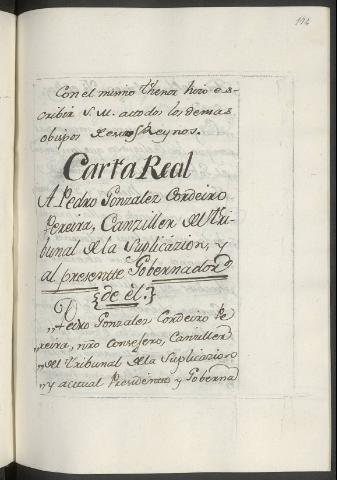 194
Con el mismo Thenor hizo es-
cribir S. M. a todos los demas
obispos de estos Reynos.
Carta Real
A Pedro Gonzalez Cordeiro
Pereira, Canziller del Tri-
bunal de la Suplicazion, y
al presentte Gobernador
{de èl.}
Pedro Gonzalez Cordeiro Pe
„reira, nro Consejero, Canziller
„del Tribunal de la Suplicazion
„y acttual Presidentte y Goberna